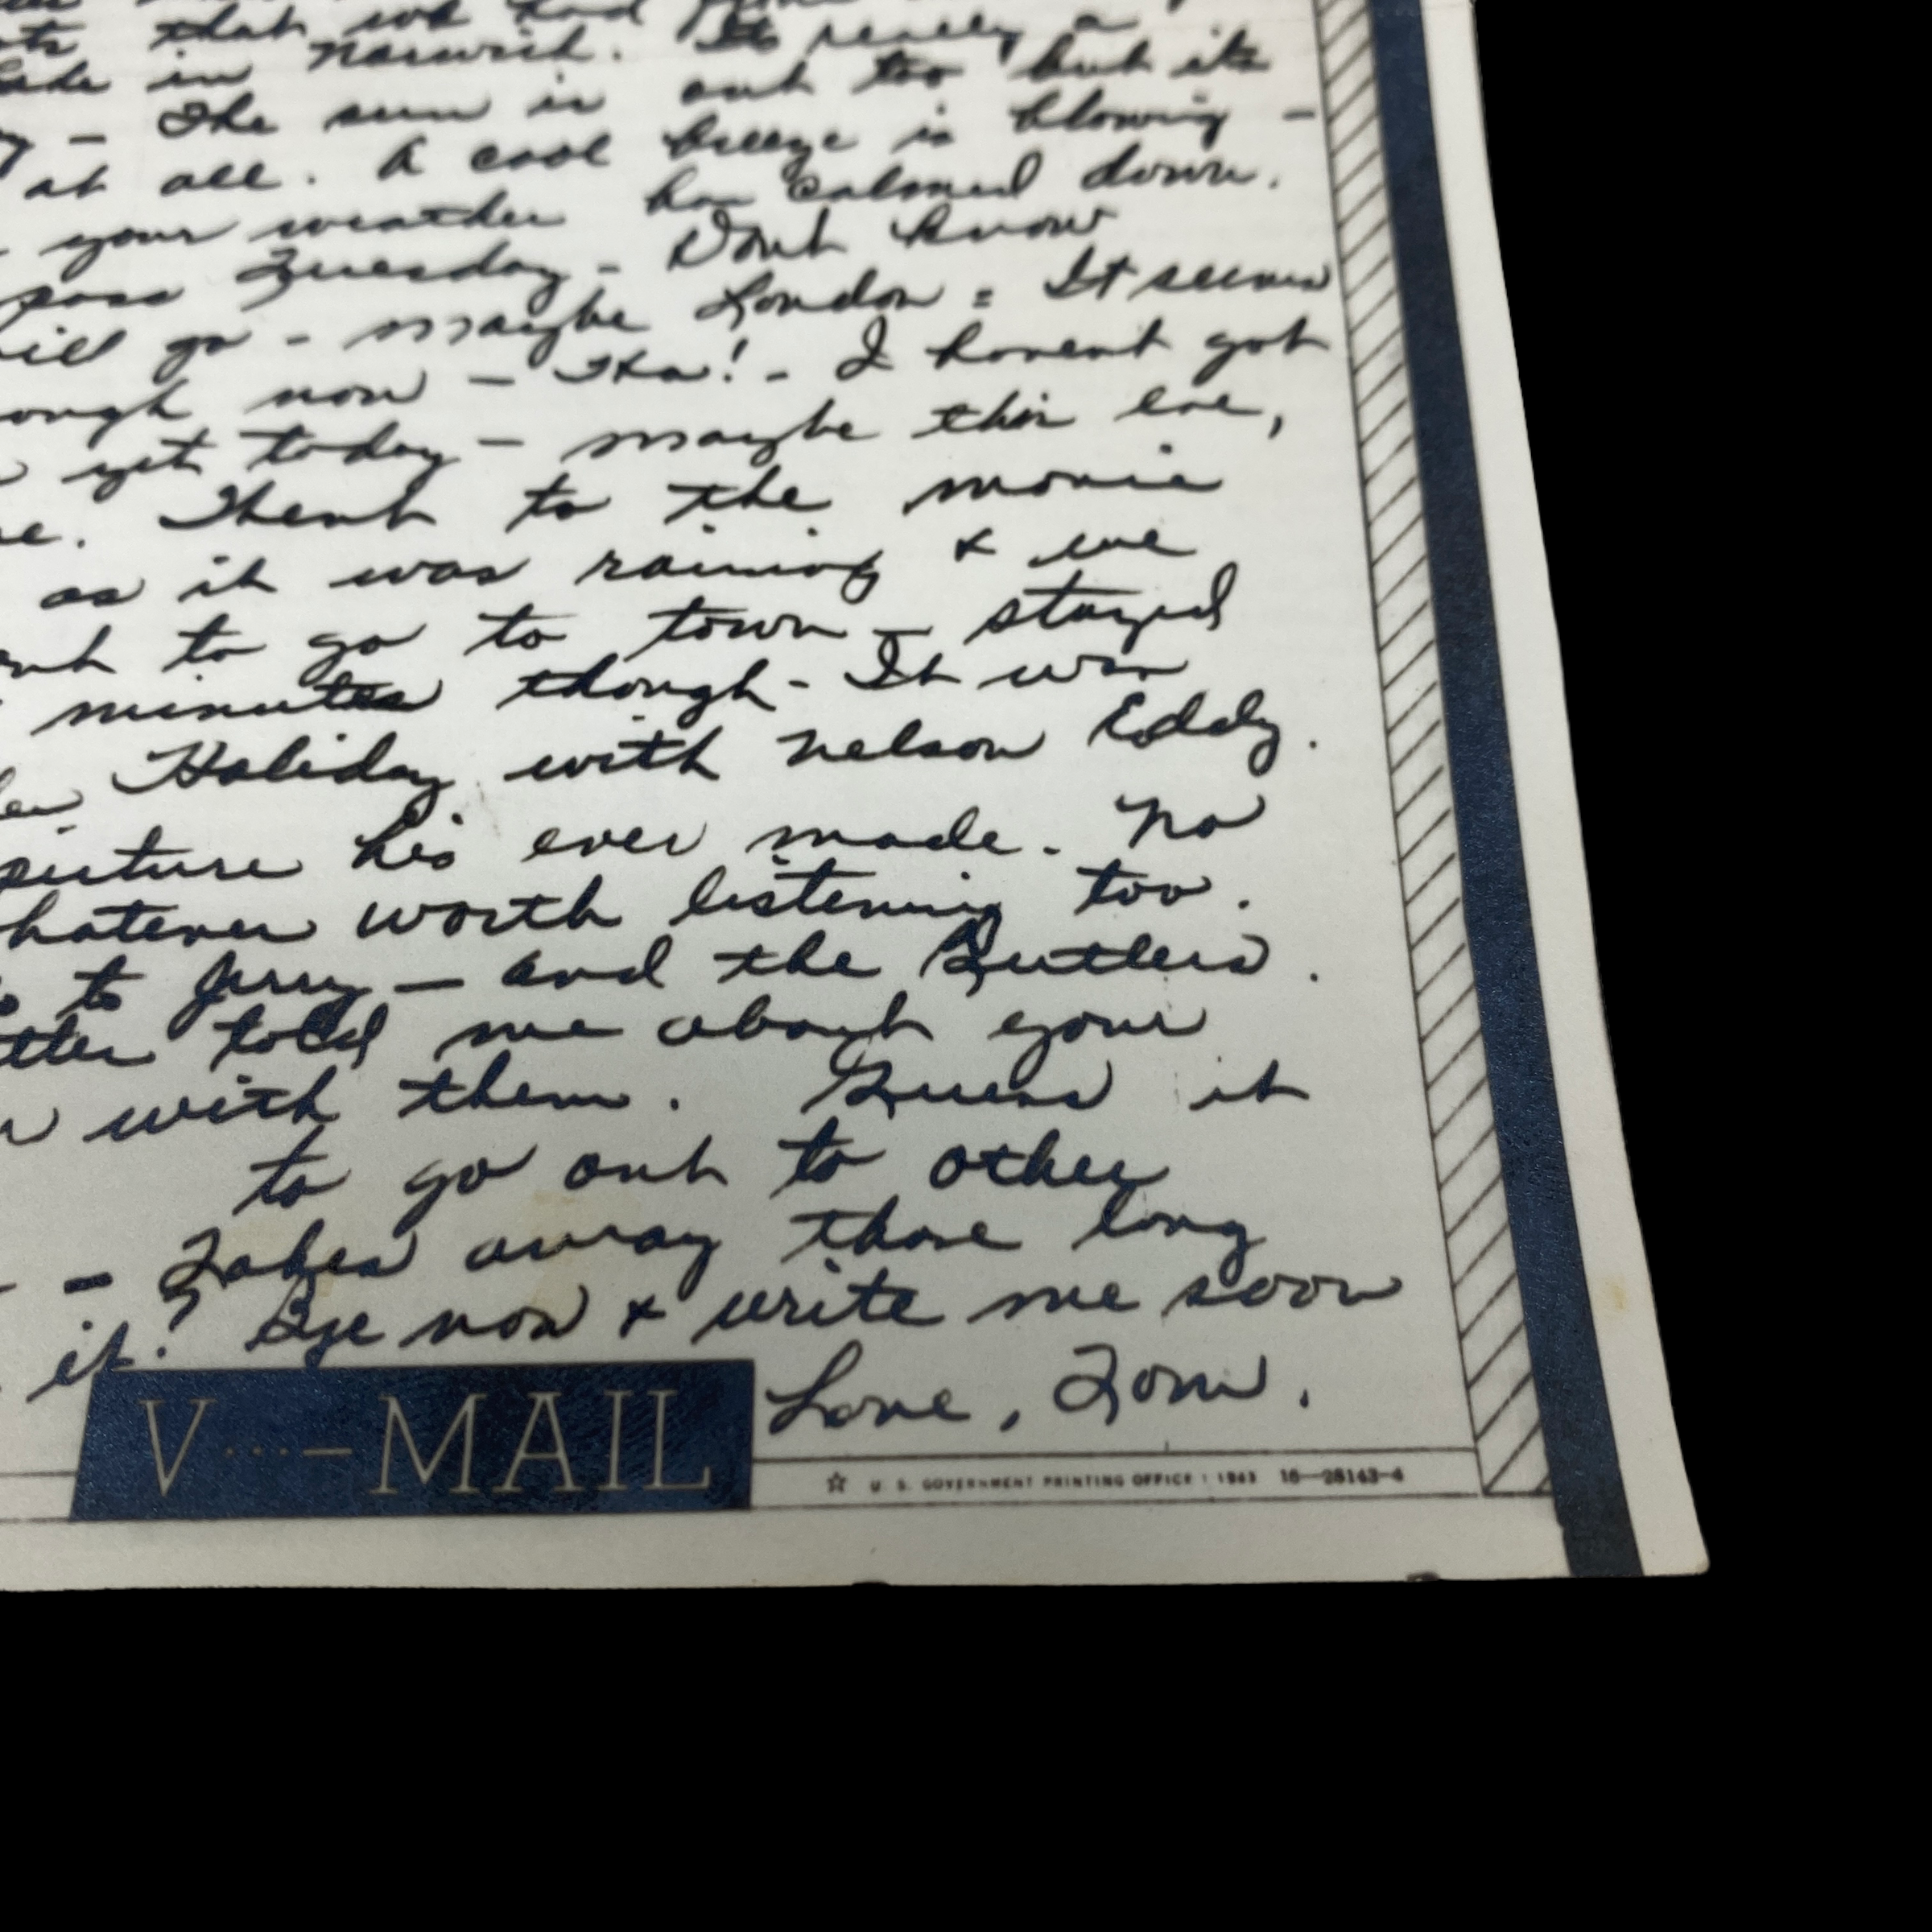 that we had
in Norwich. Its really a
- The sun is out too but its
at all. A cool breeze is blowing -
your weather has calmed down.
pass Tuesday - Dont know
go - maybe London = It seems
now - Ha! - I havent got
yet today - maybe this eve,
Went to the movie
as it was raining & we
to go to town - stayed
minutes though - It was
Holiday with Nelson Eddy.
picture his ever made. No
whatever worth listening too.
to Jerry - and the Butlers.
told me about your
with them. Guess it
to go out to other
- Takes away those long
it! Bye now & write me soon
Love, Tom.
V···—MAIL
☆ U. S. GOVERNMENT PRINTING OFFICE : 1943 16—28143-4